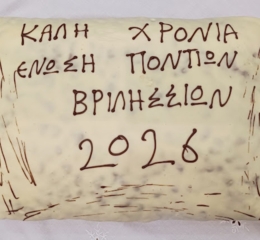 ΚΑΛΗ ΧΡΟΝΙΑ
ΕΝΩΣΗ ΠΟΝΤΙΩΝ
ΒΡΙΛΗΣΣΙΩΝ
2026